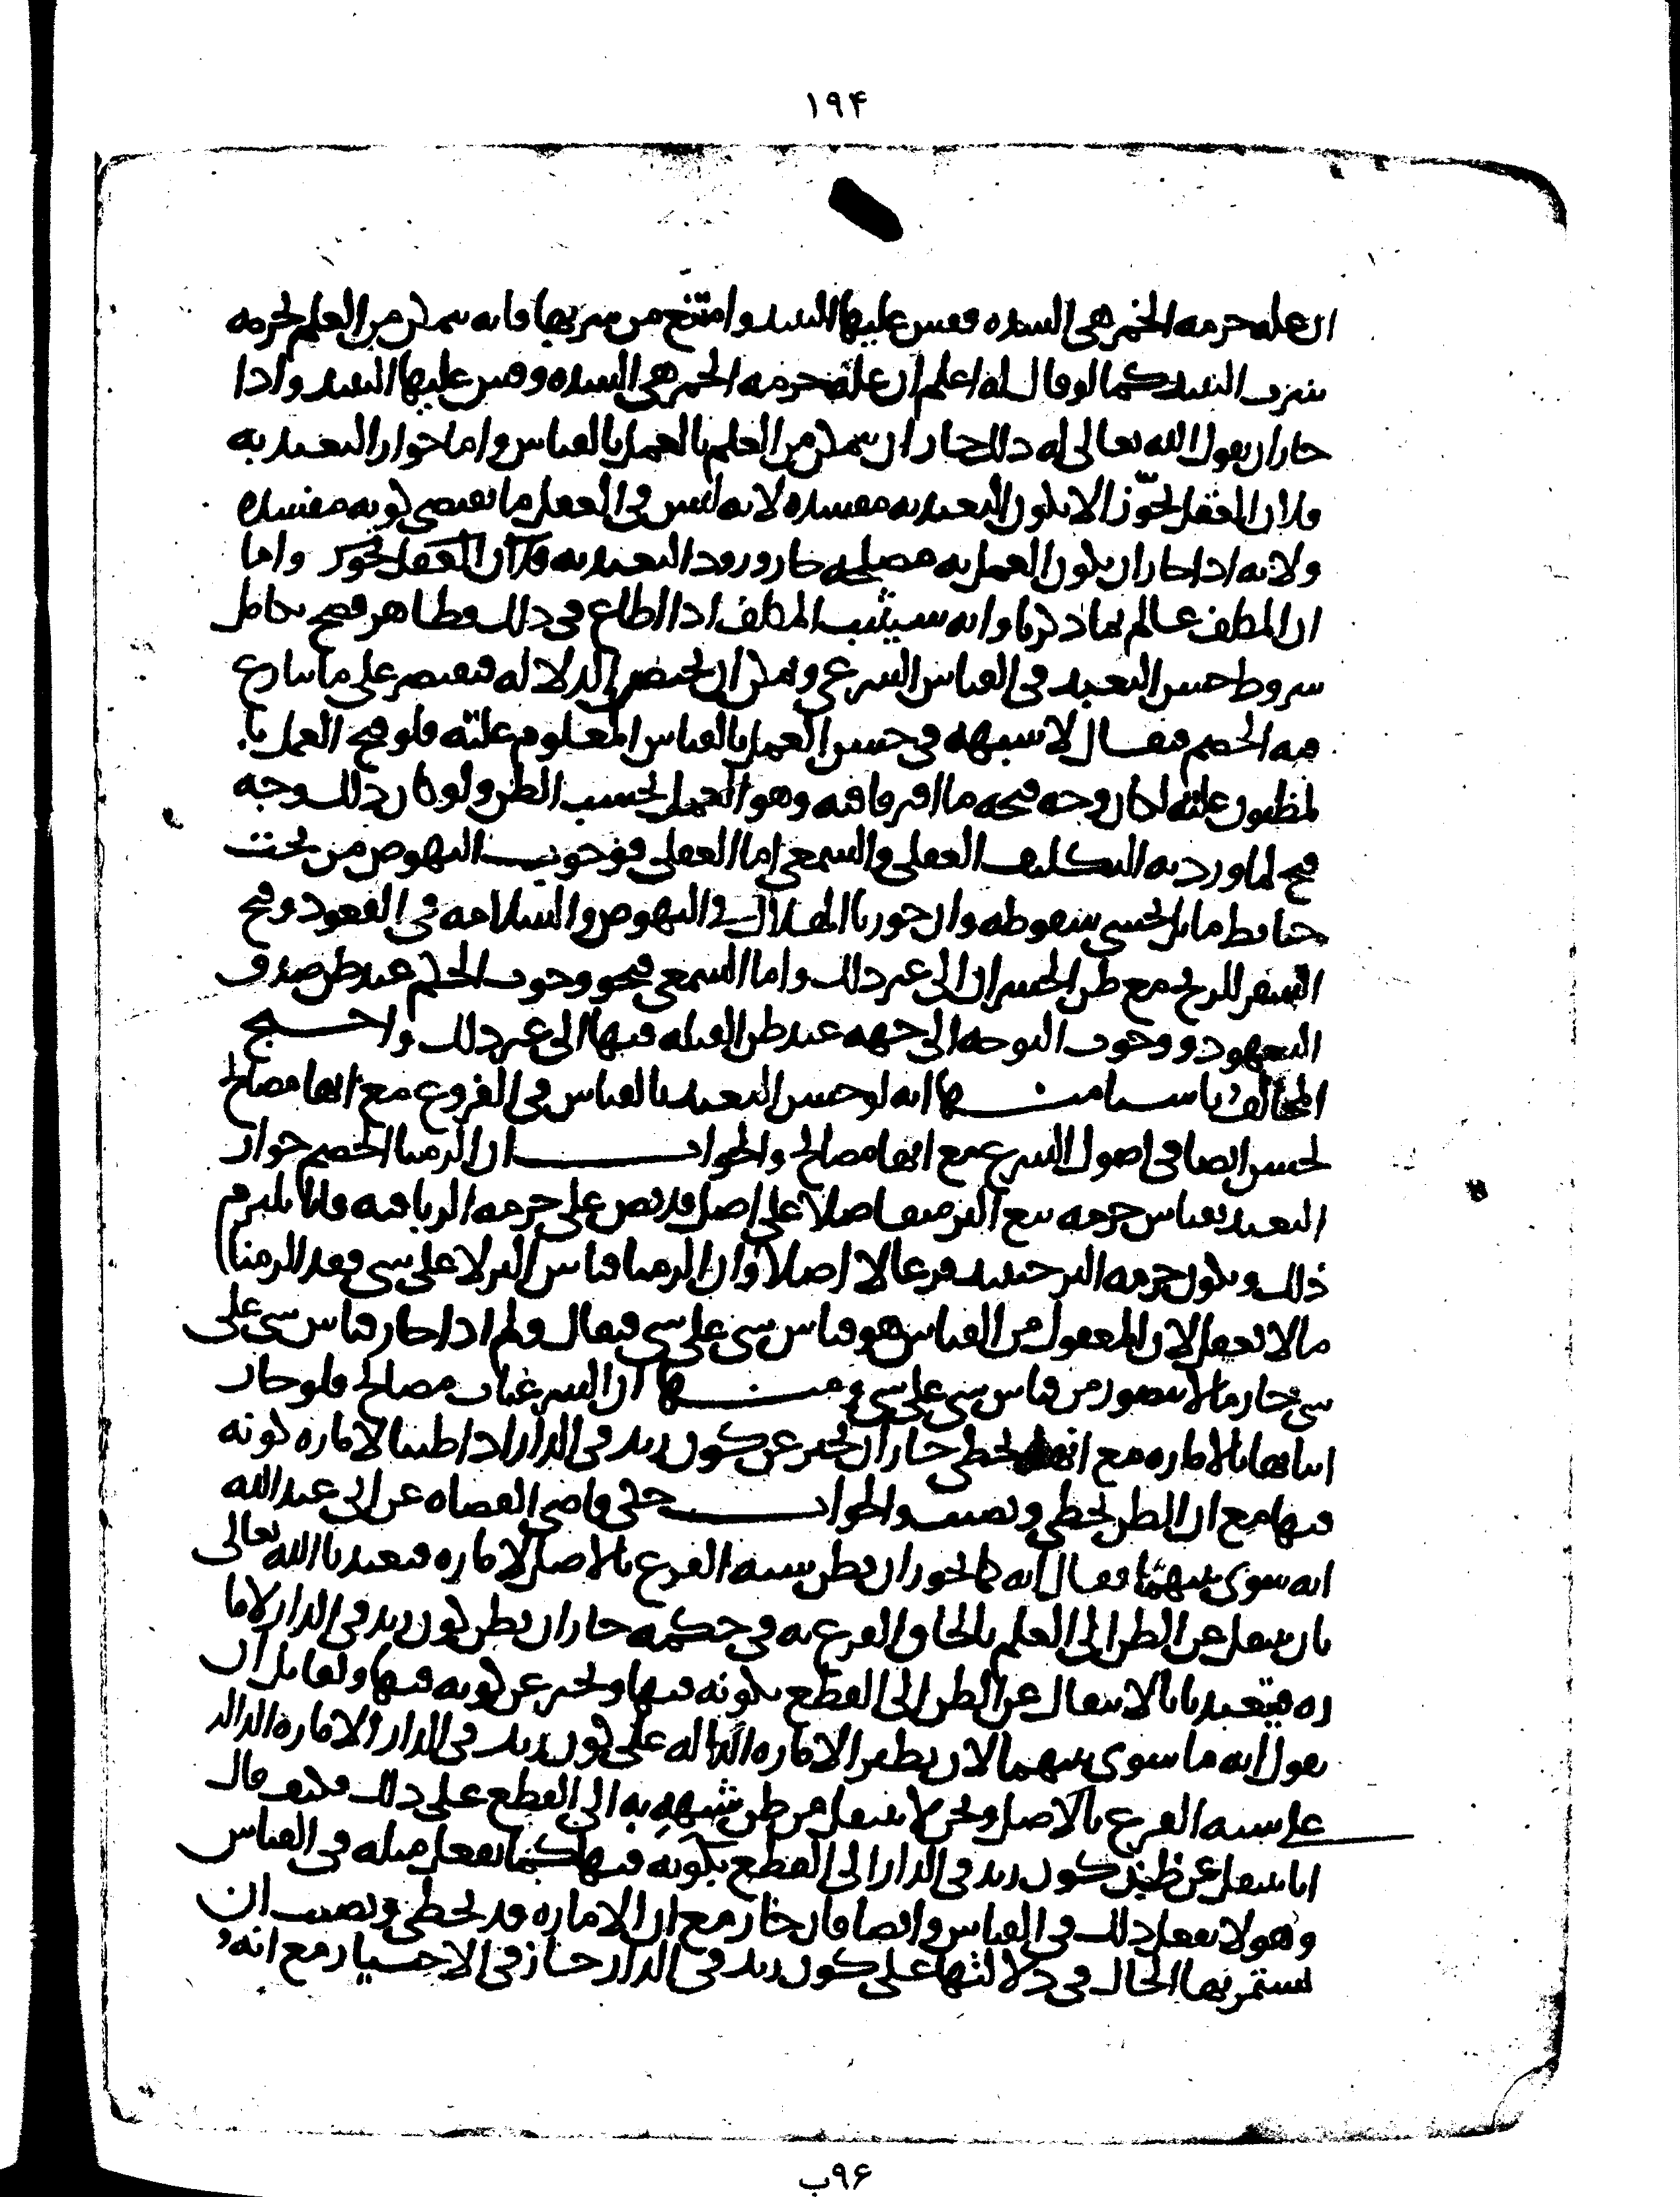 ١٩۴
ان علة حرمه الخمر هى الشده فقس عليها النبيذ وامتنع من شربها فانه يتمكن من العلم بحرمه
شرب النبيذ كما لو قال له اعلم ان علة حرمه الخمر هى الشده وقس عليها النبيذ واذا
جاز ان يقول الله تعالى له ذلك جاز ان يتمكن من العلم بالعمل بالقياس واما جواز التعبد به
فلان العقل يجوّز الا يكون التعبد به مفسده لانه ليس فى العقل ما يقتضى كونه مفسده
ولانه اذا جاز ان يكون العمل به مصلحه جاز ورود التعبد به فكان العقل يجوز واما
ان المكلف عالم بما ذكرنا وانه سيثيب المكلف اذا اطاع فى ذلك فظاهر فصح تكامل
شروط حسن التعبد فى القياس الشرعى ويمكن ان يختصر الدلاله فيقتصر على ما ينازع
فيه الخصم فيقال لا شبهه فى حسن العمل بالقياس المعلوم علته فلو قبح العمل با
لمظنون علته لكان وجه قبحه ما افترقا فيه وهو العمل بحسب الظن ولو كان ذلك وجه
قبح لما ورد به التكليف العقلى والسمعى اما العقلى فوجوب النهوض من تحت
حايط مايل يخشى سقوطه وان جوزنا الهلاك فى النهوض والسلامه فى القعود وقبح
السفر للربح مع ظن الخسران الى غير ذلك واما السمعى فنحو وجوب الحكم عند ظن صدق
الشهود ووجوب التوجه الى جهه عند ظن القبله فيها الى غير ذلك واحتج
المخالف باشيا منها انه لو حسن التعبد بالقياس فى الفروع مع انها مصالح
لحسن ايضا فى اصول الشرع مع انها مصالح والجواب ان الزمنا الخصم جواز
التعبد بقياس حرمه بيع البر متفاضلا على اصل قد نص على حرمه الربا فيه فانا نلتزم
ذلك ويكون حرمه البر حينئذ فرعا لا اصلا وان الزمنا قياس البر لا على شى فقد الزمنا
ما لا يعقل لان المعقول من القياس هو قياس شى على شى فيقال ولم اذا جاز قياس شى على
شى جاز ما لا يتصور من قياس شى على شى ومنها ان الشرعيات مصالح فلو جاز
اثباتها بالاماره مع انها تخطى جاز ان نخبر عن كون زيد فى الدار اذا ظننا لاماره كونه
فيها مع ان الظن يخطى ويصيب والجواب حكى قاضى القضاه عن ابى عبدالله
انه سوى بينهما فقال انه كما يجوز ان نظن شبه الفرع بالاصل لاماره فتعبدنا الله تعالى
بان ننتقل عن الظن الى العلم بالحاق الفرع به فى حكمه جاز ان نظن كون زيد فى الدار لاما
ره فيتعبدنا بالانتقال عن الظن الى القطع بكونه فيها ونخبر عن كونه فيها ولقايل ان
يقول انه ما سوى بينهما لان نظير الاماره الداله على كون زيد فى الدار الاماره الداله
على شبه الفرع بالاصل ونحن لا ننتقل من ظن شبهه به الى القطع على ذلك فكيف قال
انا ننتقل عن ظن كون زيد فى الدار الى القطع بكونه فيها كما نفعل مثله فى القياس
وهو لا يفعل ذلك فى القياس وايضا فان جاز مع ان الاماره قد تخطى وتصيب ان
تستمر بها الحال فى دلالتها على كون زيد فى الدار جاز فى الاختيار مع انه
٩۶ب